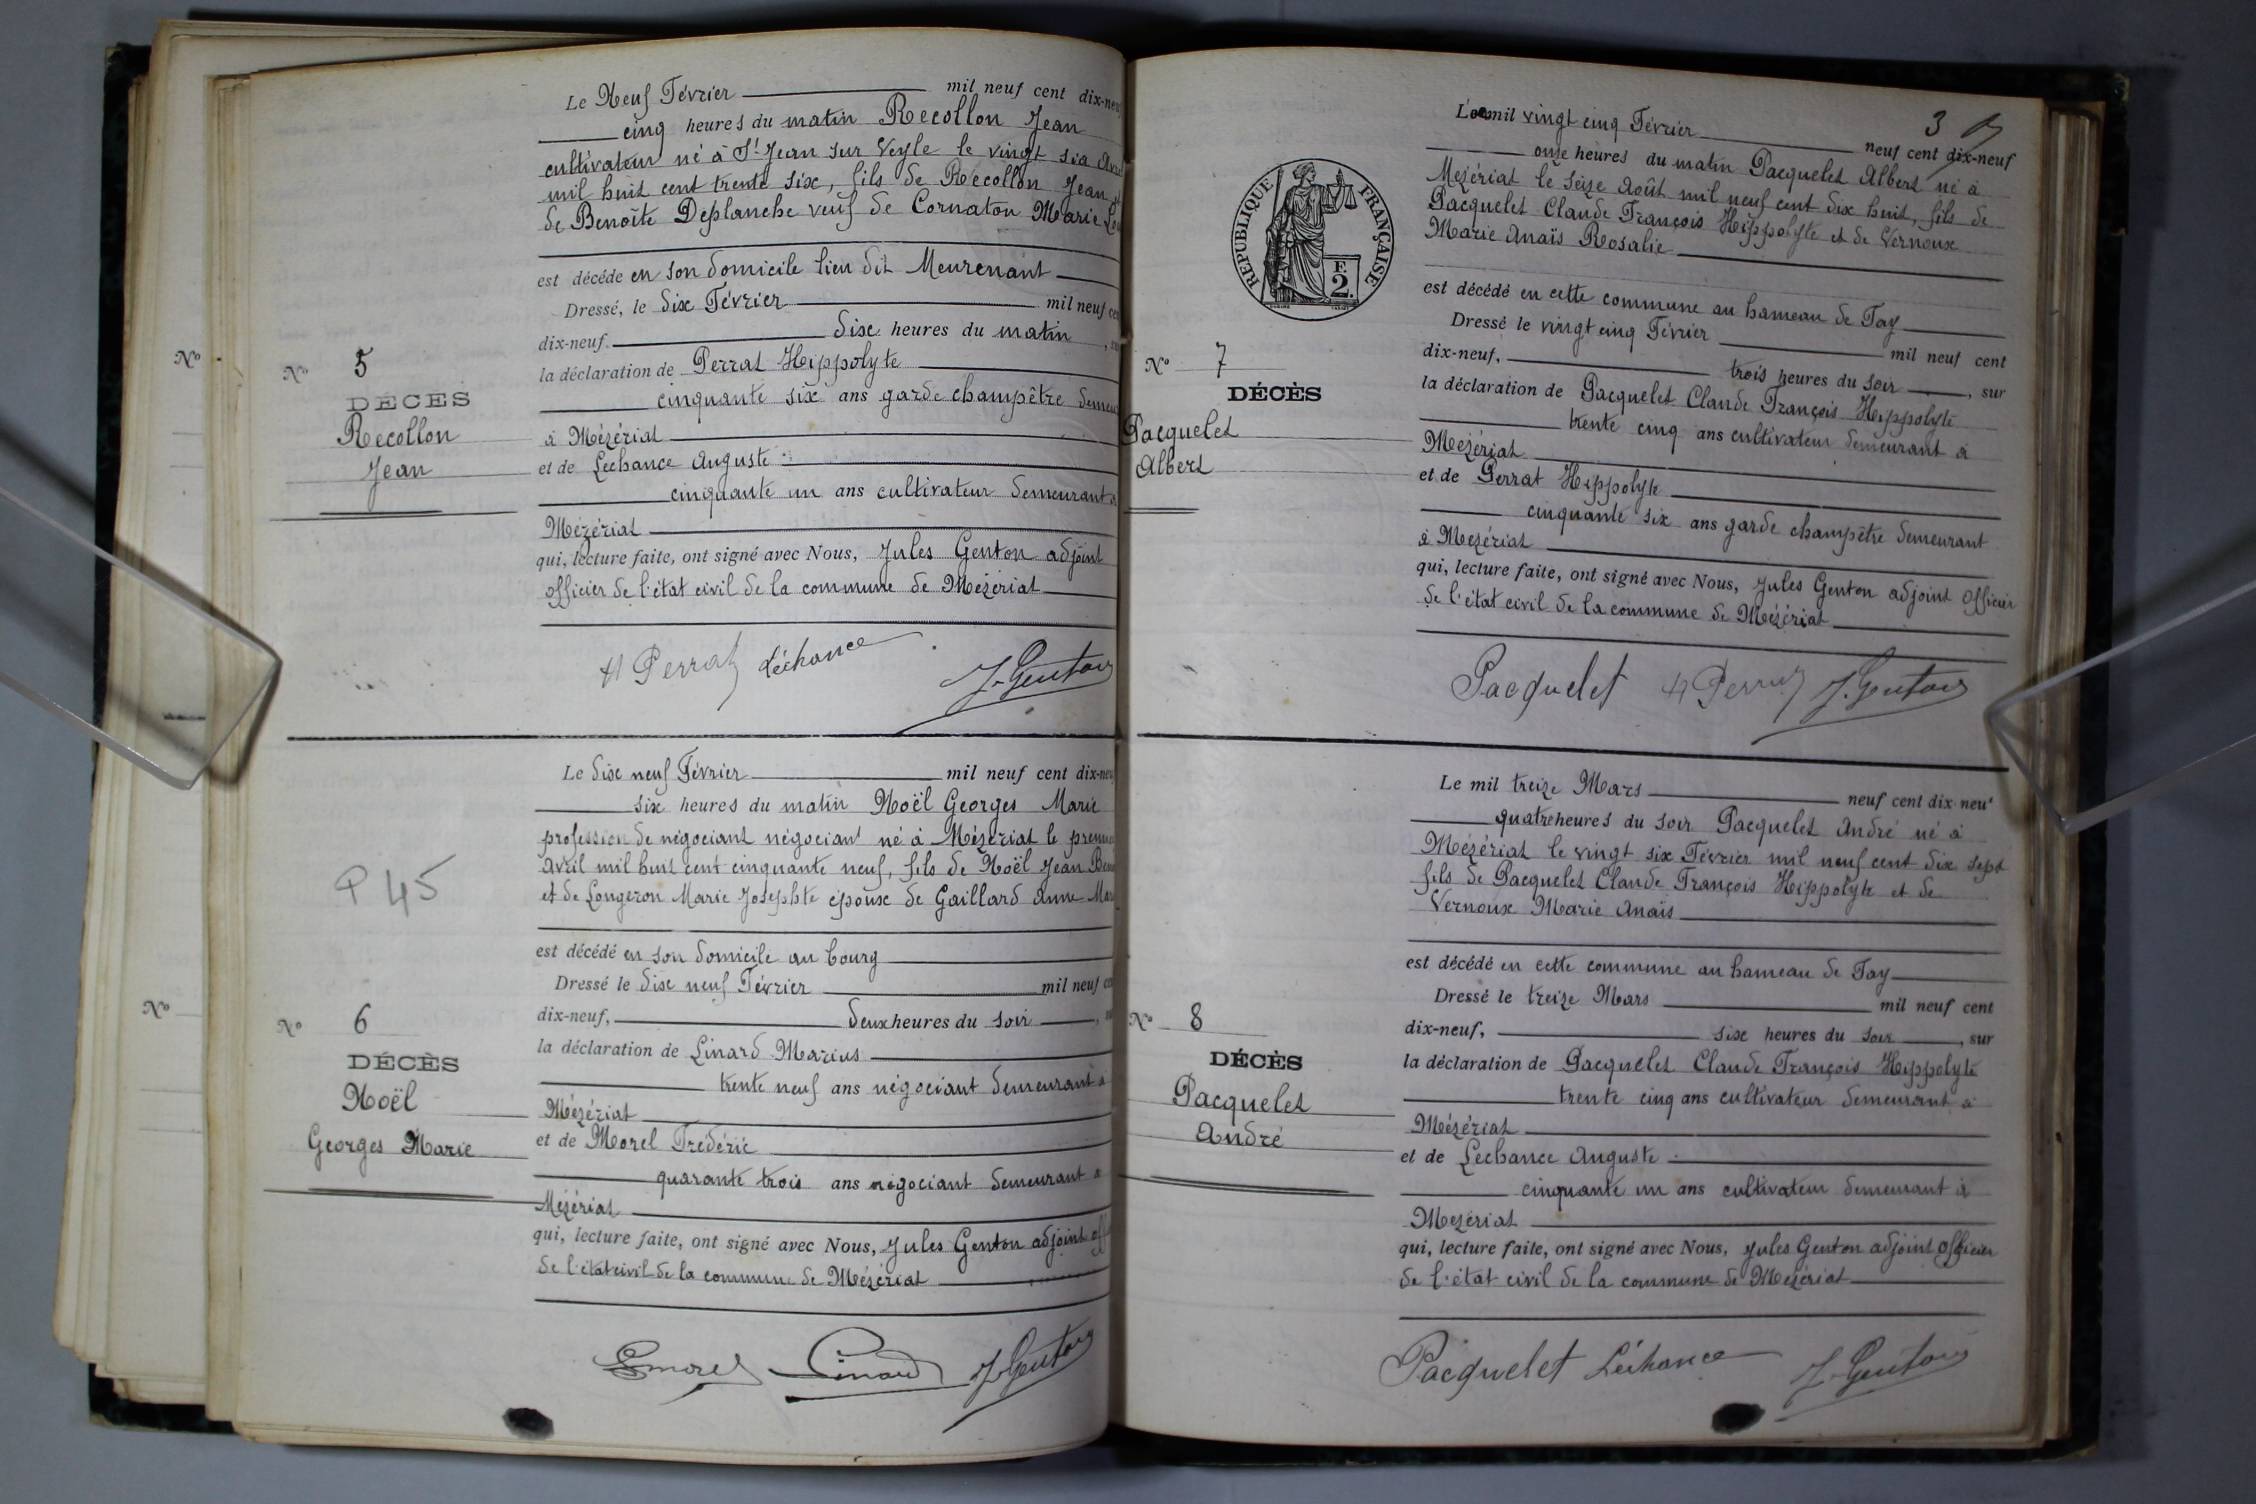 Le Neuf Février mil neuf cent dix-neu
cinq heures du matin Recollon Jean
cultivateur né à St Jean sur Veyle le vingt six Avri
mil huit cent trente six, fils de Recollon Jean et
de Benoîte Deplanche veuf de Cornaton Marie Lou
est décédé en son domicile lieu dit Meurenant
Dressé, le dix Février mil neuf cen
dix-neuf. dix heures du matin
la déclaration de Perrat Hippolyte
cinquante six ans garde champêtre demeu
à Mézériat
et de Lechance Auguste
cinquante un ans cultivateur demeurant à
Mézériat
qui, lecture faite, ont signé avec Nous, Jules Genton adjoint
officier de l'état civil de la commune de Mézériat
H Perrat Léchance J. Genton
No
No 5
DÉCÈS
Recollon
Jean
Le dix neuf Février mil neuf cent dix-neu
six heures du matin Noël Georges Marie
profession de négociant négociant né à Mézériat le premie
avril mil huit cent cinquante neuf, fils de Noël Jean Ben
et de Longeron Marie Josephte époux de Gaillard Anne Mar
est décédé en son domicile au bourg
Dressé le dix neuf Février mil neuf ce
dix-neuf, deux heures du soir
la déclaration de Linard Marius
trente neuf ans négociant demeurant à
Mézériat
et de Morel Frédéric
quarante trois ans négociant demeurant à
Mézériat
qui, lecture faite, ont signé avec Nous, Jules Genton adjoint off
de l'état civil de la commune de Mézériat
Morel Linard J. Genton
P 45
No
No 6
DÉCÈS
Noël
Georges Marie
3
Le mil vingt cinq Février neuf cent dix-neuf
onze heures du matin Pacquelet Albert né à
Mézériat le seize Août mil neuf cent dix huit, fils de
Pacquelet Claude François Hippolyte et de Vernoux
Marie Anaïs Rosalie
est décédé en cette commune au hameau de Tay
Dressé le vingt cinq Février mil neuf cent
dix-neuf, trois heures du soir, sur
la déclaration de Pacquelet Claude François Hippolyte
trente cinq ans cultivateur demeurant à
Mezériat
et de Perrat Hippolyte
cinquante six ans garde champêtre demeurant
à Mezériat
qui, lecture faite, ont signé avec Nous, Jules Genton adjoint officier
de l'état civil de la commune de Mézériat
Pacquelet H Perrat J. Genton
REPUBLIQUE FRANÇAISE
F.
2.
No 7
DÉCÈS
Pacquelet
Albert
Le mil treize Mars neuf cent dix neuf
quatre heures du soir Pacquelet André né à
Mézériat le vingt six Février mil neuf cent dix sept
fils de Pacquelet Claude François Hippolyte et de
Vernoux Marie Anaïs
est décédé en cette commune au hameau de Tay
Dressé le treize Mars mil neuf cent
dix-neuf, six heures du soir, sur
la déclaration de Pacquelet Claude François Hippolyte
trente cinq ans cultivateur demeurant à
Mézériat
et de Lechance Auguste
cinquante un ans cultivateur demeurant à
Mezériat
qui, lecture faite, ont signé avec Nous, Jules Genton adjoint officier
de l'état civil de la commune de Mezériat
Pacquelet Léchance J. Genton
No 8
DÉCÈS
Pacquelet
André